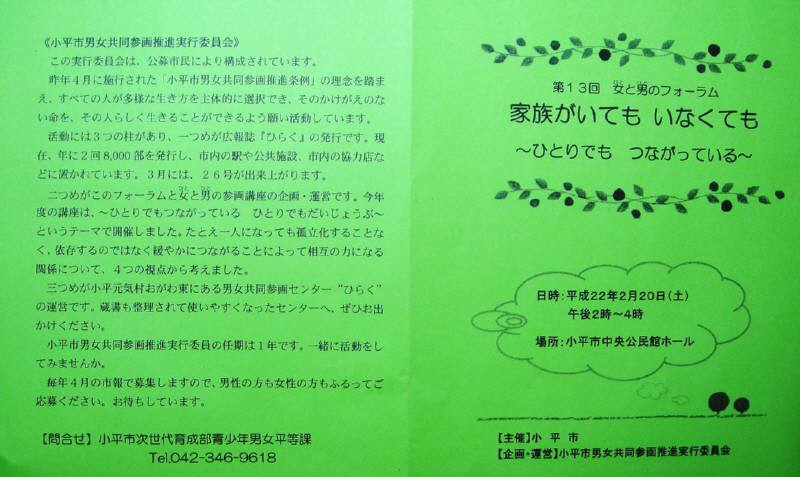 《小平市男女共同参画推進実行委員会》
この実行委員会は、公募市民により構成されています。
昨年4月に施行された「小平市男女共同参画推進条例」の理念を踏ま
え、すべての人が多様な生き方を主体的に選択でき、そのかけがえのな
い命を、その人らしく生きることができるよう願い活動しています。
活動には3つの柱があり、一つめが広報誌『ひらく』の発行です。現
在、年に2回8,000部を発行し、市内の駅や公共施設、市内の協力店な
どに置かれています。3月には、26号が出来上がります。
二つめがこのフォーラムと女と男の参画講座の企画・運営です。今年
度の講座は、~ひとりでもつながっている ひとりでもだいじょうぶ~
というテーマで開催しました。たとえ一人になっても孤立化することな
く、依存するのではなく緩やかにつながることによって相互の力になる
関係について、4つの視点から考えました。
三つめが小平元気村おがわ東にある男女共同参画センター“ひらく”
の運営です。蔵書も整理されて使いやすくなったセンターへ、ぜひお出
かけください。
小平市男女共同参画推進実行委員の任期は1年です。一緒に活動をし
てみませんか。
毎年4月の市報で募集しますので、男性の方も女性の方もふるってご
応募ください。お待ちしています。
【問合せ】小平市次世代育成部青少年男女平等課
Tel.042-346-9618
第13回 女と男のフォーラム
家族がいても いなくても
~ひとりでも つながっている~
日時:平成22年2月20日(土)
午後2時~4時
場所:小平市中央公民館ホール
【主催】小 平 市
【企画・運営】小平市男女共同参画推進実行委員会